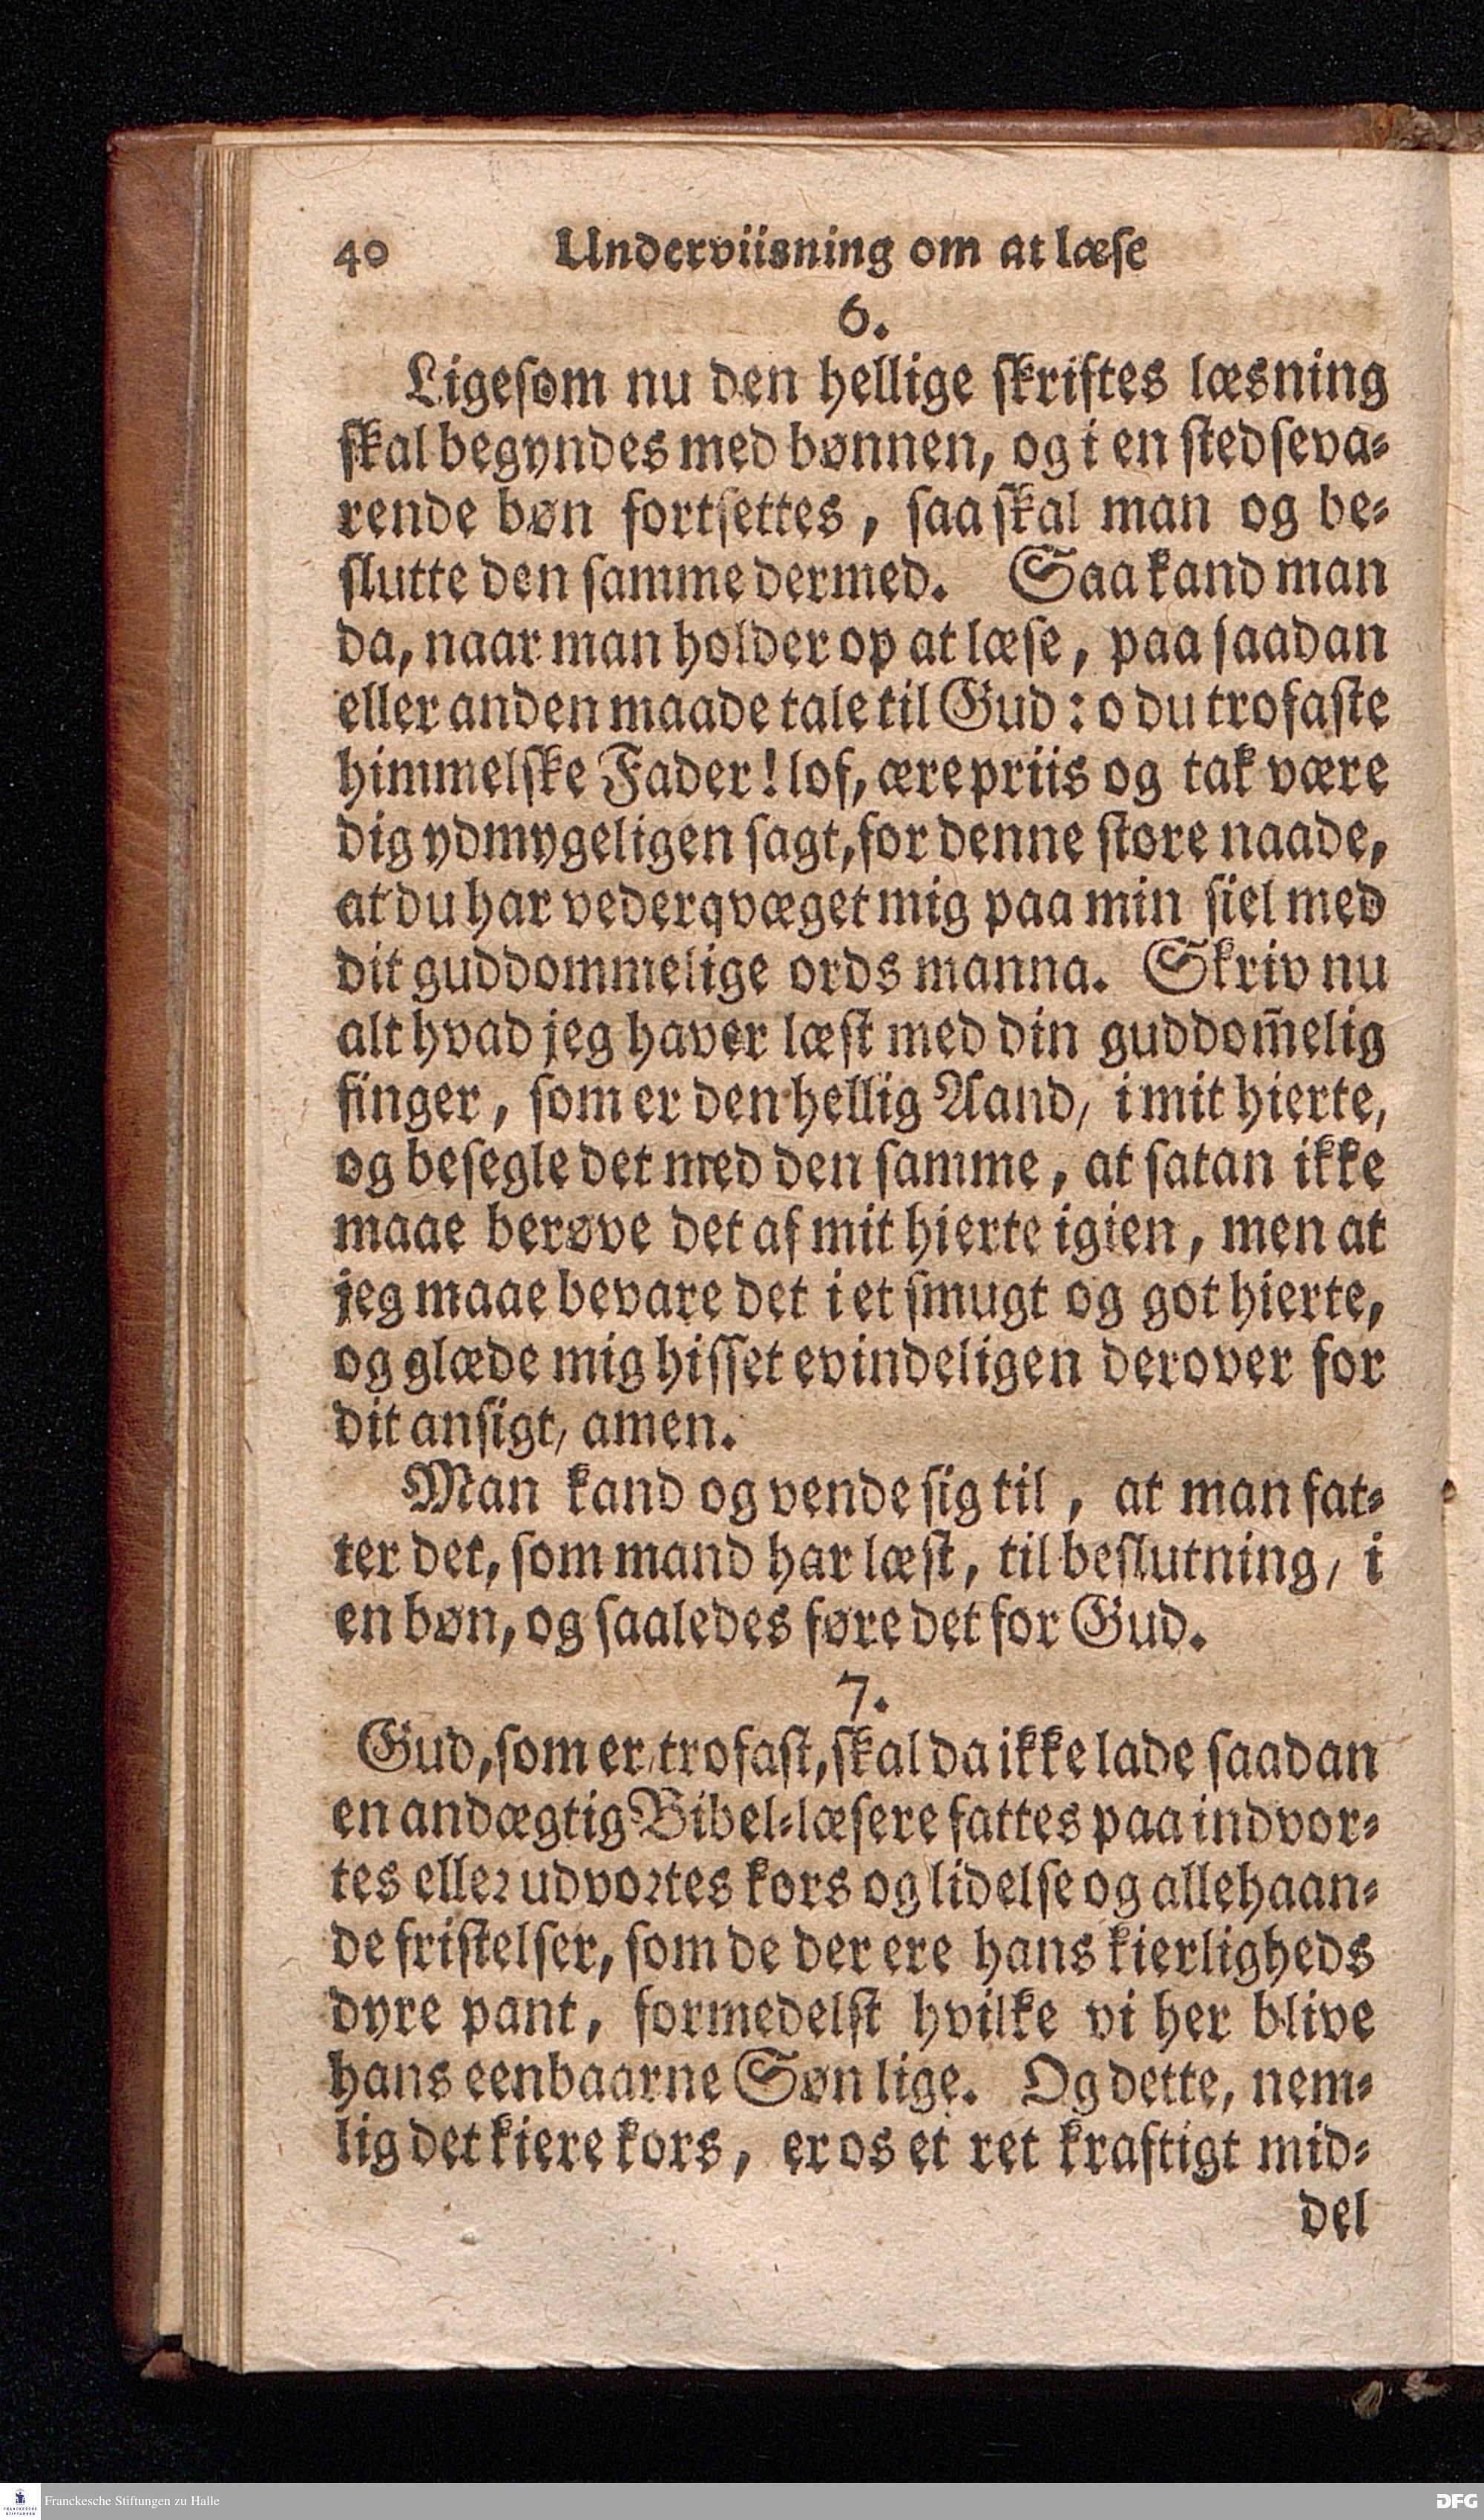 40 Underviisning om at læse
6.
Ligesom nu den hellige skriftes læsning
skal begyndes med bønnen, og i en stedseva-
rende bøn fortsettes, saa skal man og be-
slutte den samme dermed. Saa kand man
da, naar man holder op at læse, paa saadan
eller anden maade tale til Gud: o du trofaste
himmelske Fader! lof, ære priis og tak være
dig ydmygeligen sagt, for denne store naade,
at du har vederqvæget mig paa min siel med
dit guddommelige ords manna. Skriv nu
alt hvad jeg haver læst med din guddom̄elig
finger, som er den hellig Aand, i mit hierte,
og besegle det med den samme, at satan ikke
maae berøve det af mit hierte igien, men at
jeg maae bevare det i et smugt og got hierte,
og glæde mig hisset evindeligen derover for
dit ansigt, amen.
Man kand og vende sig til, at man fat-
ter det, som mand har læst, til beslutning, i
en bøn, og saaledes føre det for Gud.
7.
Gud, som er trofast, skal da ikke lade saadan
en andægtig Bibel-læsere fattes paa indvor-
tes eller udvortes kors og lidelse og allehaan-
de fristelser, som de der ere hans kierligheds
dyre pant, formedelst hvilke vi her blive
hans eenbaarne Søn lige. Og dette, nem-
lig det kiere kors, er os et ret kraftigt mid-
del
Franckesche Stiftungen zu Halle
DFG